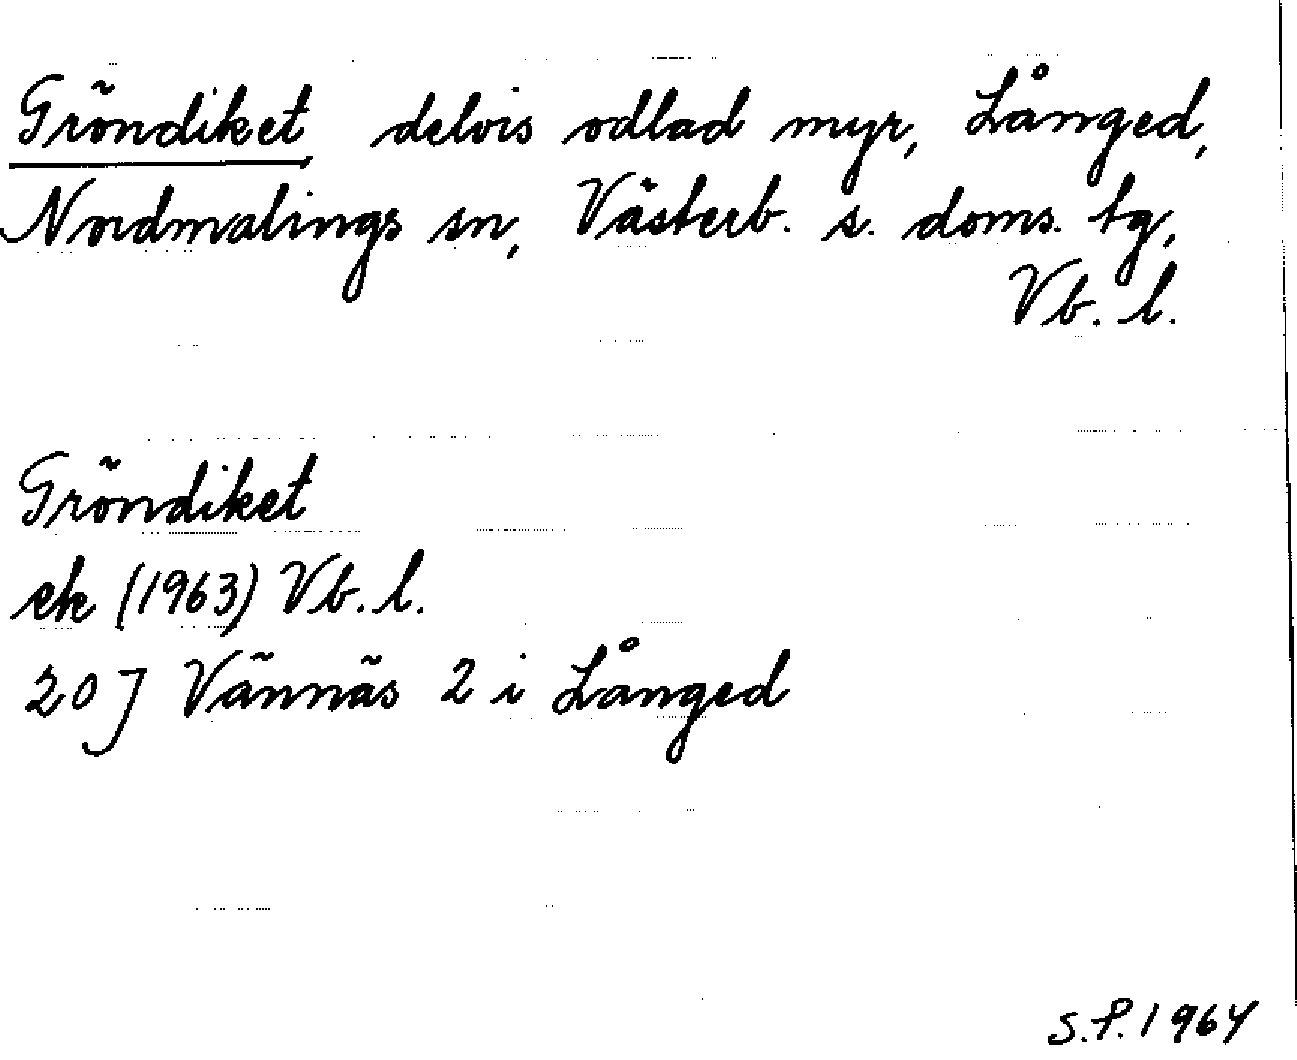 Gröndiket delvis odlad myr, Långed,
Nordmalings sn, Västerb. s. doms. tg,
Vb. l.
Gröndiket
ek (1963) Vb. l.
20 J Vännäs 2 i Långed
S.P. 1964